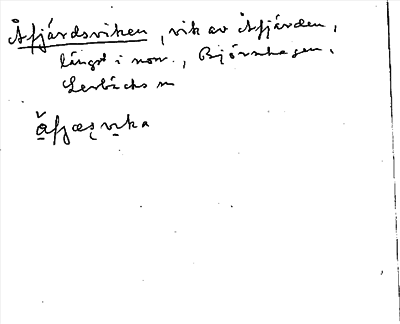 Åfjärdsviken, vik av Åfjärden,
längst i nov., Björnhagen,
Lerbäcks sn
åfjæsvika